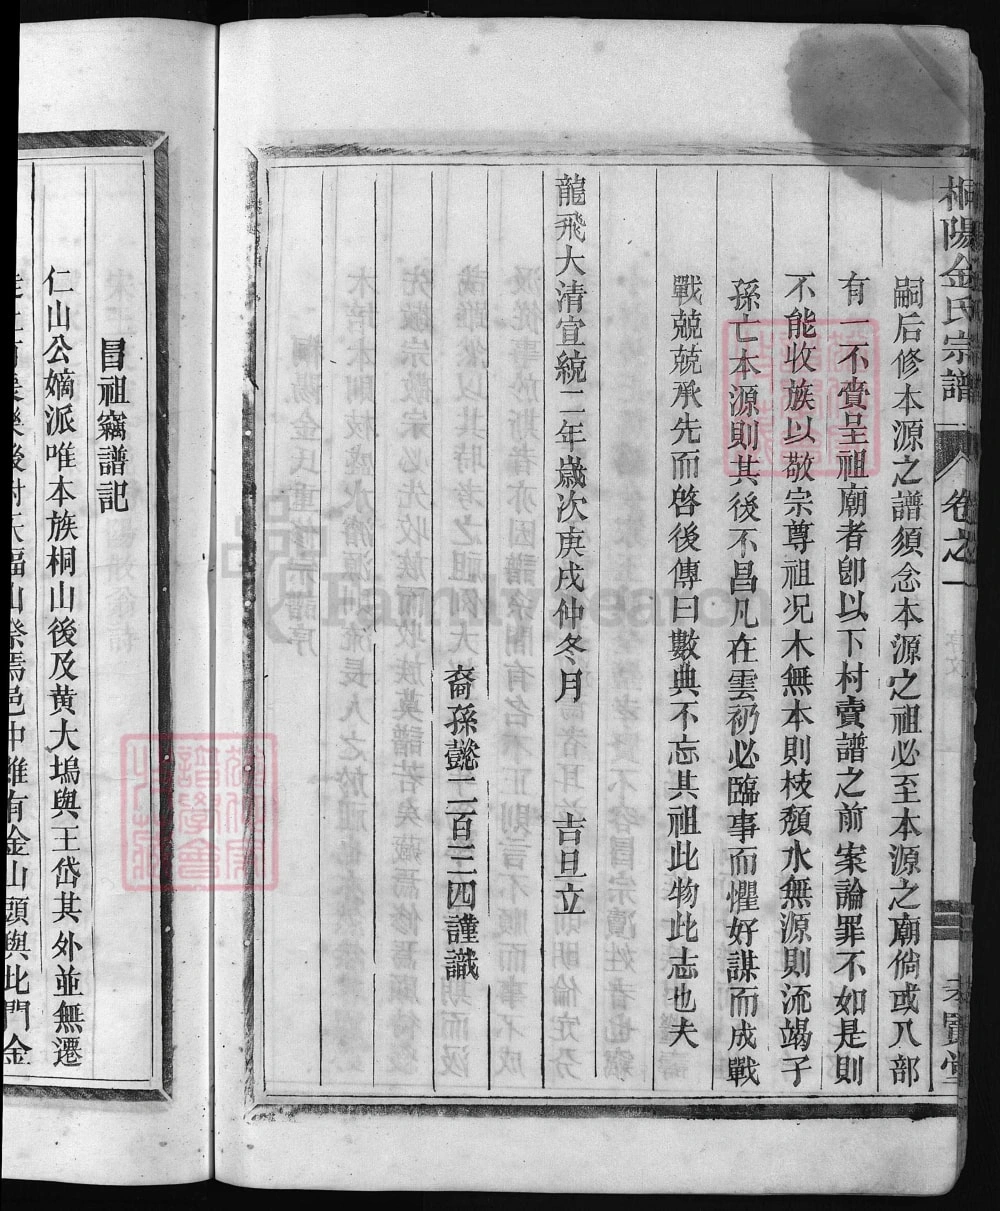 桐陽金氏宗譜 卷之一
嗣后修本源之譜須念本源之祖必至本源之廟倘或八部
有一不賫呈祖廟者卽以下村賣譜之前案論罪不如是則
不能收族以敬宗尊祖況木無本則枝頽水無源則流竭子
孫亡本源則其後不昌凡在雲礽必臨事而懼好謀而成戰
戰兢兢承先而啓後傳曰數典不忘其祖此物此志也夫
龍飛大清宣統二年歲次庚戌仲冬月 吉旦立
裔孫懿二百三四謹識
昌祖竊譜記
仁山公嫡派唯本族桐山後及黄大塢與王岱其外並無遷